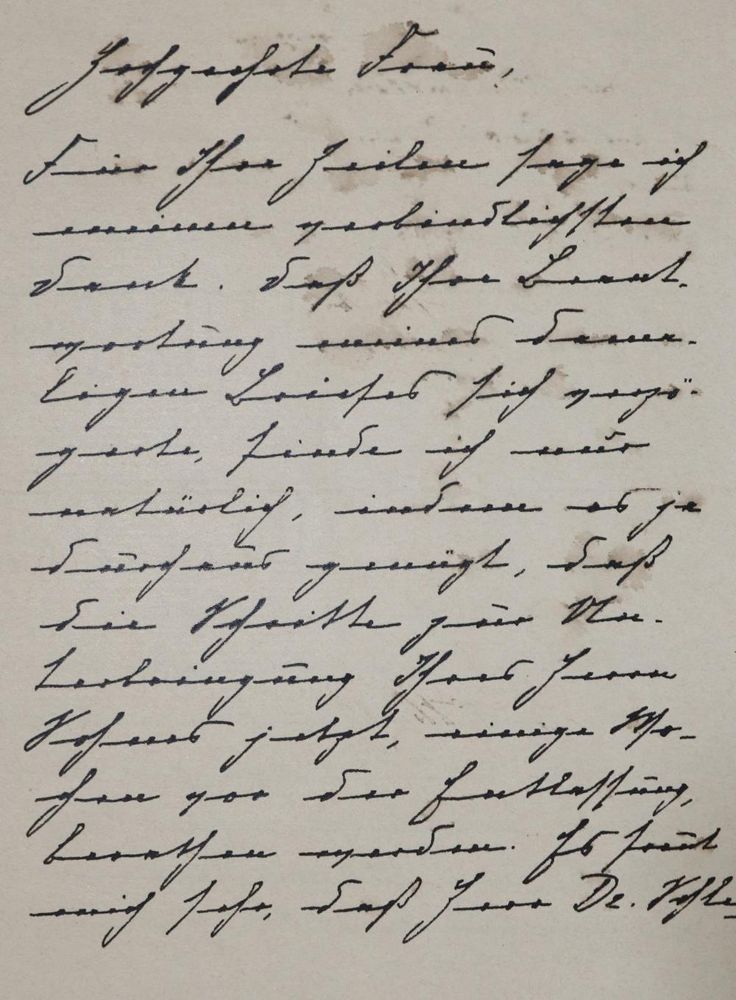 Hochgeehrte Frau,
Für Ihre Zeilen sage ich
meinen verbindlichsten
Dank. Daß Ihre Beant-
wortung meines dama-
ligen Briefes sich verzö-
gerte, finde ich nur
natürlich, indem es ja
durchaus genügt, daß
die Schritte zur Un-
terbringung Ihres Herrn
Sohnes jetzt, einige Wo-
chen vor der Entlassung,
berathen werden. Es freut
mich sehr, daß Herr Dr. Schle-